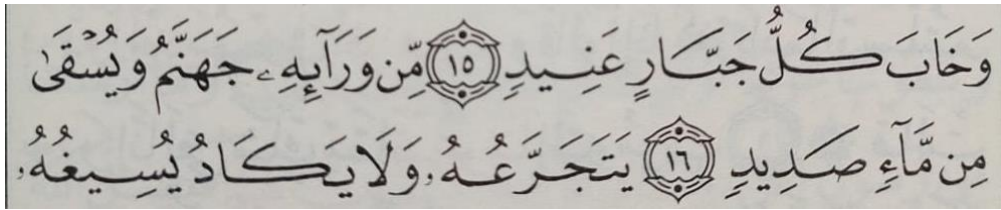 وَخَابَ كُلُّ جَبَّارٍ عَنِيدٍ ١٥ مِّن وَرَآئِهِۦ جَهَنَّمُ وَيُسْقَىٰ
مِن مَّآءٍ صَدِيدٍ ١٦ يَتَجَرَّعُهُۥ وَلَا يَكَادُ يُسِيغُهُۥ